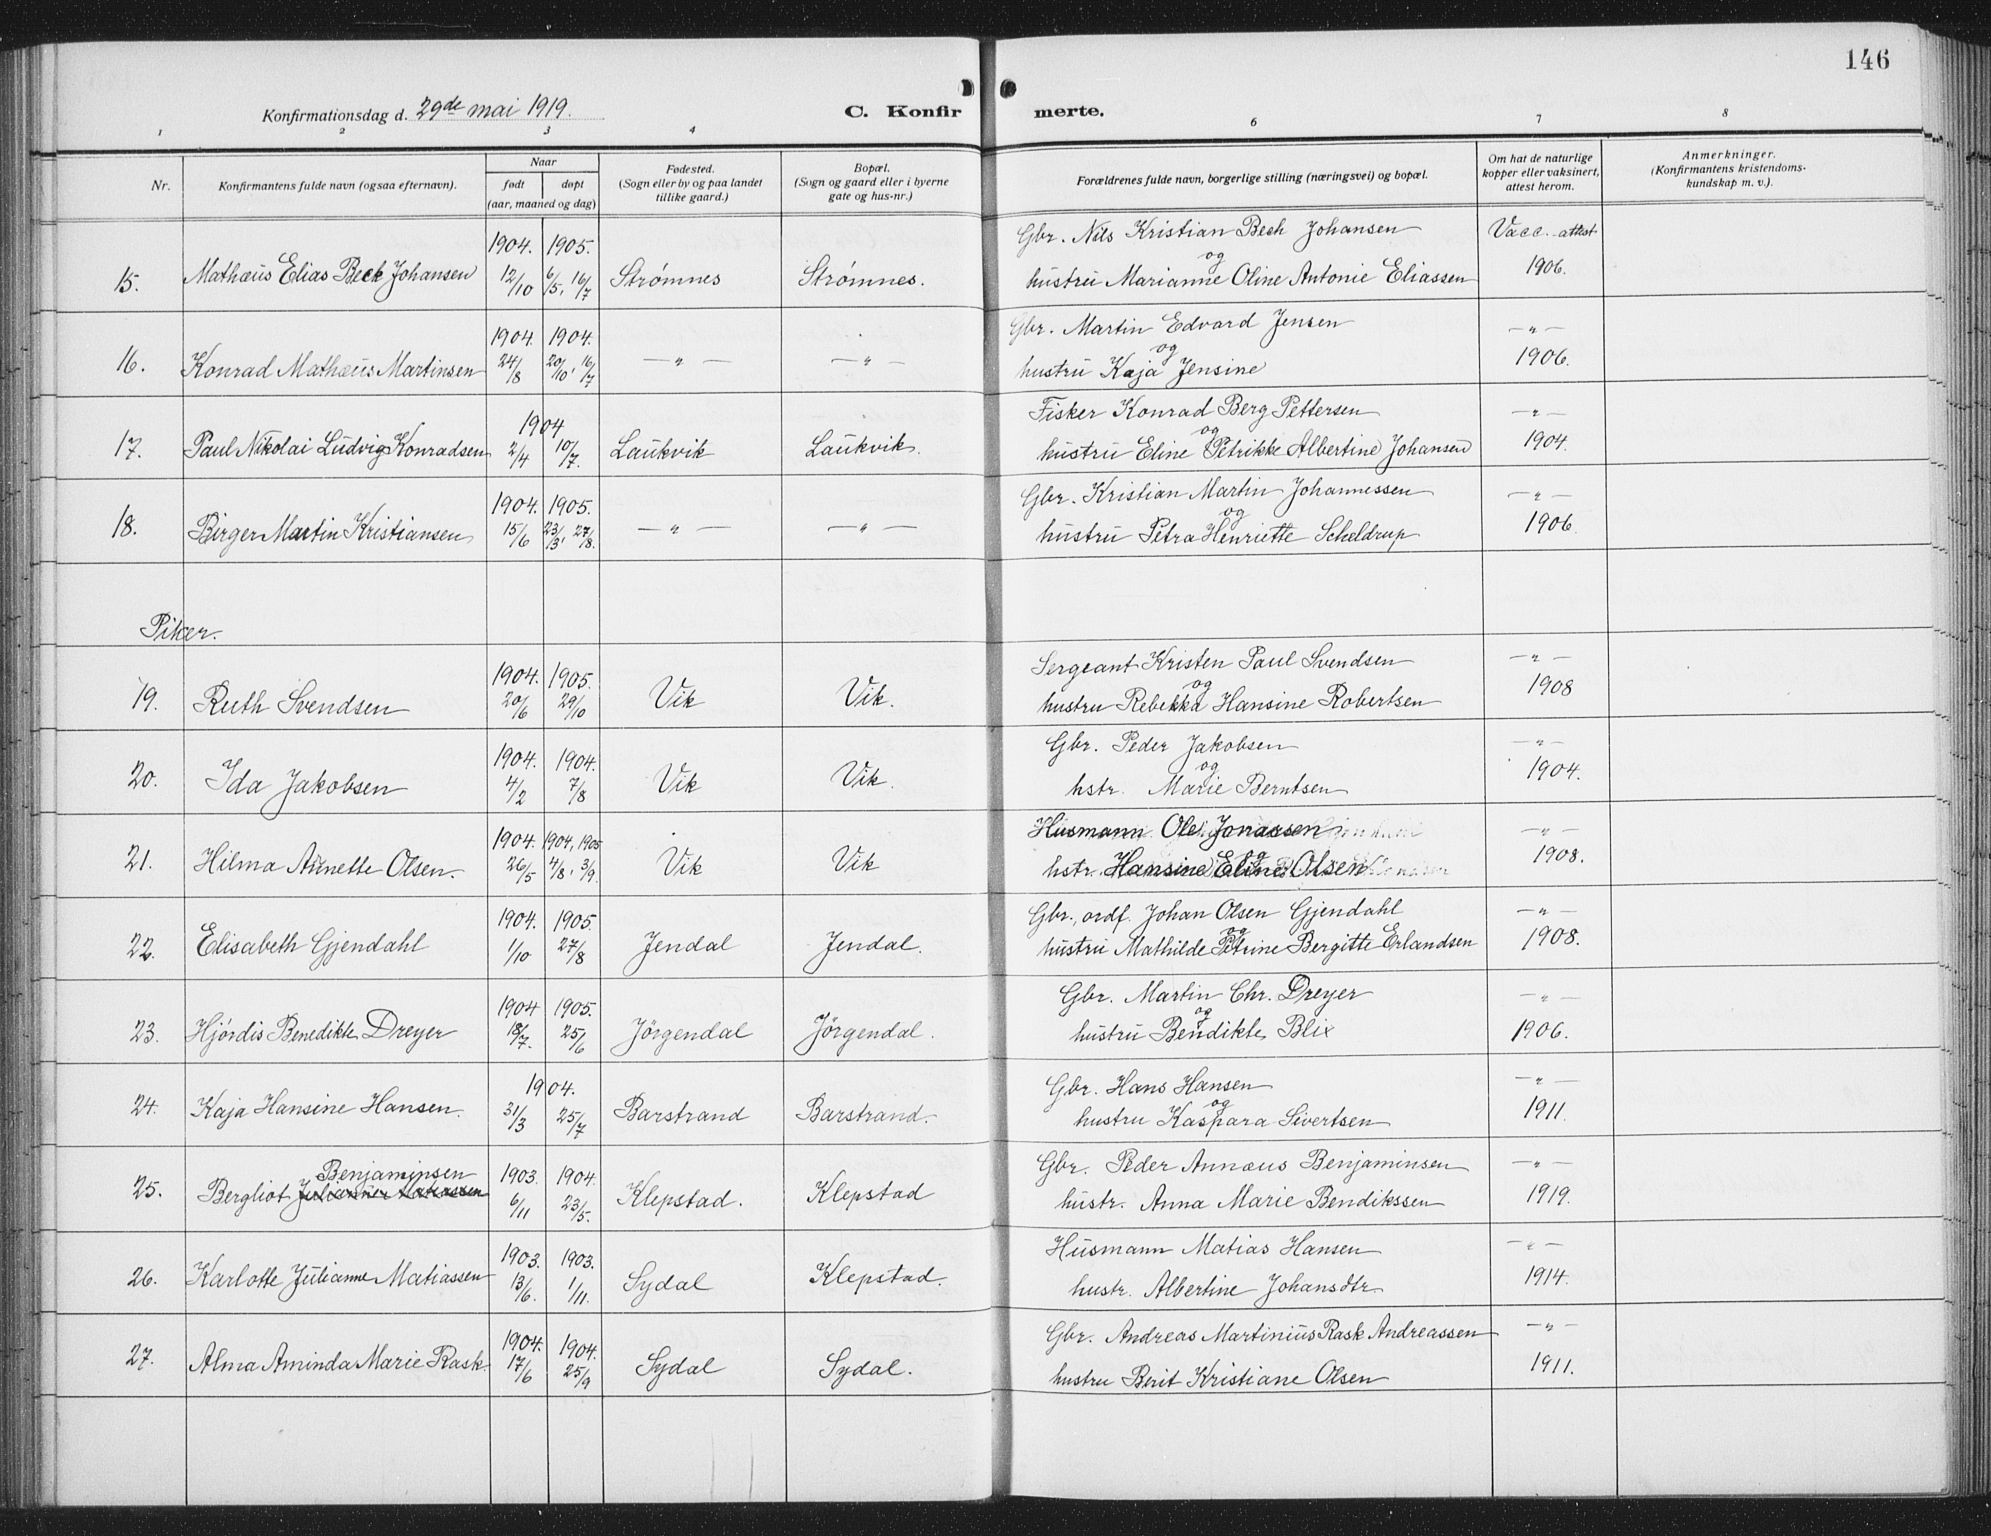 146
Konfirmationsdag d. 29de mai 1919.
C. Konfirmerte.
1 2 3 4 6 7 8
Nr.
Konfirmantens fulde navn (ogsaa efternavn).
Naar
født døpt
(aar, maaned og dag)
Fødested.
(Sogn eller by og paa landet
tillike gaard.)
Bopæl.
(Sogn og gaard eller i byerne
gate og hus-nr.)
Forældrenes fulde navn, borgerlige stilling (næringsvei) og bopæl.
Om hat de naturlige
kopper eller vaksinert,
attest herom.
Anmerkninger.
(Konfirmantens kristendoms-
kundskap m. v.).
1904. 1905. Gbr. Nils Kristian Beck Johansen Vacc. attest
15. Mathæus Elias Beck Johansen 12/10 6/5, 16/7 Strømnes Strømnes. og
hustru Marianne Oline Antonie Eliassen 1906.
1904. 1904. Gbr. Martin Edvard Jensen — " —
16. Konrad Mathæus Martinsen 24/8 20/10, 16/7 — " — — " — og
hustru Kaja Jensine 1906.
1904 Fisker Konrad Berg Pettersen — " —
17. Paul Nikolai Ludvig Konradsen 2/4 10/7. Laukvik Laukvik. og
hustru Eline Petrikke Albertine Johansen 1904.
1904. 1905. Gbr. Kristian Martin Johannessen — " —
18. Birger Martin Kristiansen 15/6 23/3, 27/8. — " — — " — og
hustru Petra Henriette Scheldrup 1906.
Piker.
1904. 1905. Sergeant Kristen Paul Svendsen — " —
19. Ruth Svendsen 20/6 29/10 Vik Vik. og
hustru Rebekka Hansine Robertsen 1908
1904. 1904. Gbr. Peder Jakobsen — " —
20. Ida Jakobsen 4/2 7/8 Vik Vik. og
hstr. Marie Berntsen 1904.
1904. 1904, 1905 Husmann Ole Jonassen — " —
21. Hilma Annette Olsen. 26/5 4/8, 3/9. Vik Vik og
hstr. Hansine Eline Olsen 1908.
1904. 1905. Gbr., ordf. Johan Olsen Gjendahl — " —
22. Elisabeth Gjendahl 1/10 27/8 Jendal Jendal. og
hustru Mathilde Petrine Bergitte Erlandsen 1908.
1904 1905. Gbr. Martin Chr. Dreyer — " —
23. Hjördis Benedikte Dreyer 18/7. 25/6 Jörgendal Jörgendal. og
hustru Bendikte Blix 1906.
1904. Gbr. Hans Hansen — " —
24. Kaja Hansine Hansen. 31/3 25/7 Barstrand Barstrand. og
hustru Kaspara Sivertsen 1911.
Benjaminsen 1903. 1904. Gbr. Peder Annæus Benjaminsen — " —
25. Bergliot 6/11 23/5. Klepstad. Klepstad hustr. Anna Marie Bendikssen 1919.
1903. 1903. Husmann Matias Hansen — " —
26. Karlotte Julianne Matiassen 13/6. 1/11. Sydal Klepstad. hustr. Albertine Johansdtr 1914.
1904. 1904. Gbr. Andreas Martinius Rask Andreassen — " —
27. Alma Aminda Marie Rask. 17/6 25/9 Sydal Sydal. hustru Berit Kristiane Olsen 1911.